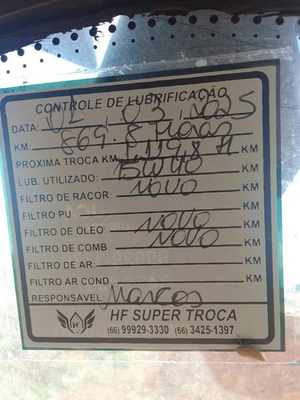 CONTROLE DE LUBRIFICAÇÃO
DATA: 02 03 2025
KM: 869.8 Horas
PROXIMA TROCA KM 1119,8 H KM
LUB. UTILIZADO: 15W40 KM
FILTRO DE RACOR: NOVO KM
FILTRO PU KM
FILTRO DE OLEO: NOVO KM
FILTRO DE COMB. NOVO KM
FILTRO DE AR: KM
FILTRO AR COND. KM
RESPONSÁVEL: Marcos
HF
HF SUPER TROCA
(66) 99929-3330 (66) 3425-1397